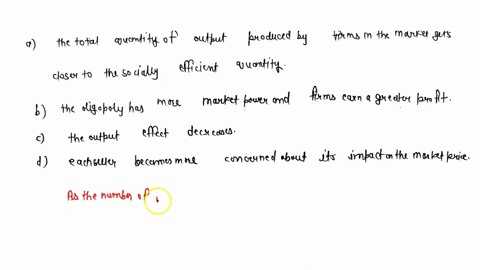 a) the total quantity of output produced by firms in the market gets
closer to the socially efficient quantity.
b) the oligopoly has more market power and firms earn a greater profit.
c) the output effect decreases.
d) each seller becomes more concerned about its impact on the market price.
As the number of